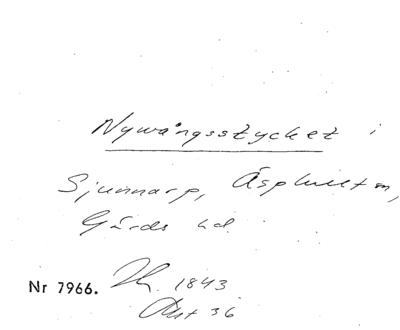 Nywångsstycket i
Sjunnarp, Äsphult sn,
Gärds hd.
Nr 7966. 1843
36